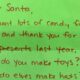 Santa,
lots of candy f
and thank you for
presents last year,
do you make toys?
do elves make